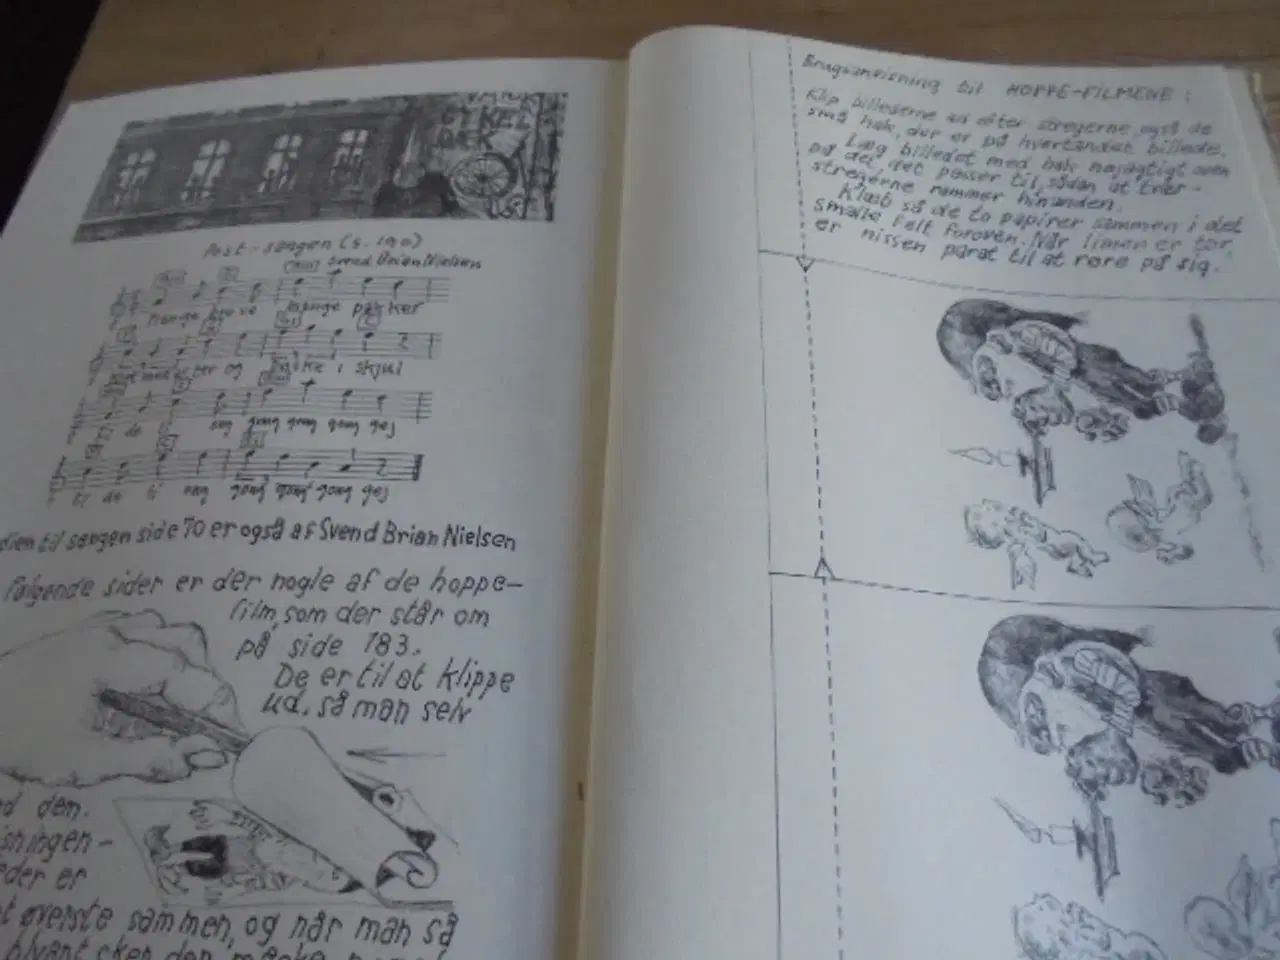 CYKEL
Post-sangen (s. 190)
Svend Brian Nielsen
mange pakker
og i skjul
gang gang gang gej
er de ti gang gang gang gej
dien til sangen side 70 er også af Svend Brian Nielsen
følgende sider er der nogle af de hoppe-
film, som der står om
på side 183.
De er til at klippe
ud, så man selv
dem.
sningen-
eder er
øverste sammen, og når man så
Brugsanvisning til HOPPE-FILMENE:
Klip billederne ud efter stregerne, også de
små hak, der er på hvertandet billede.
Læg billedet med hak nøjagtigt oven
på det, det passer til, sådan at tvær-
stregerne rammer hinanden.
Klæb så de to papirer sammen i det
smalle felt foroven. Når limen er tør,
er nissen parat til at røre på sig.